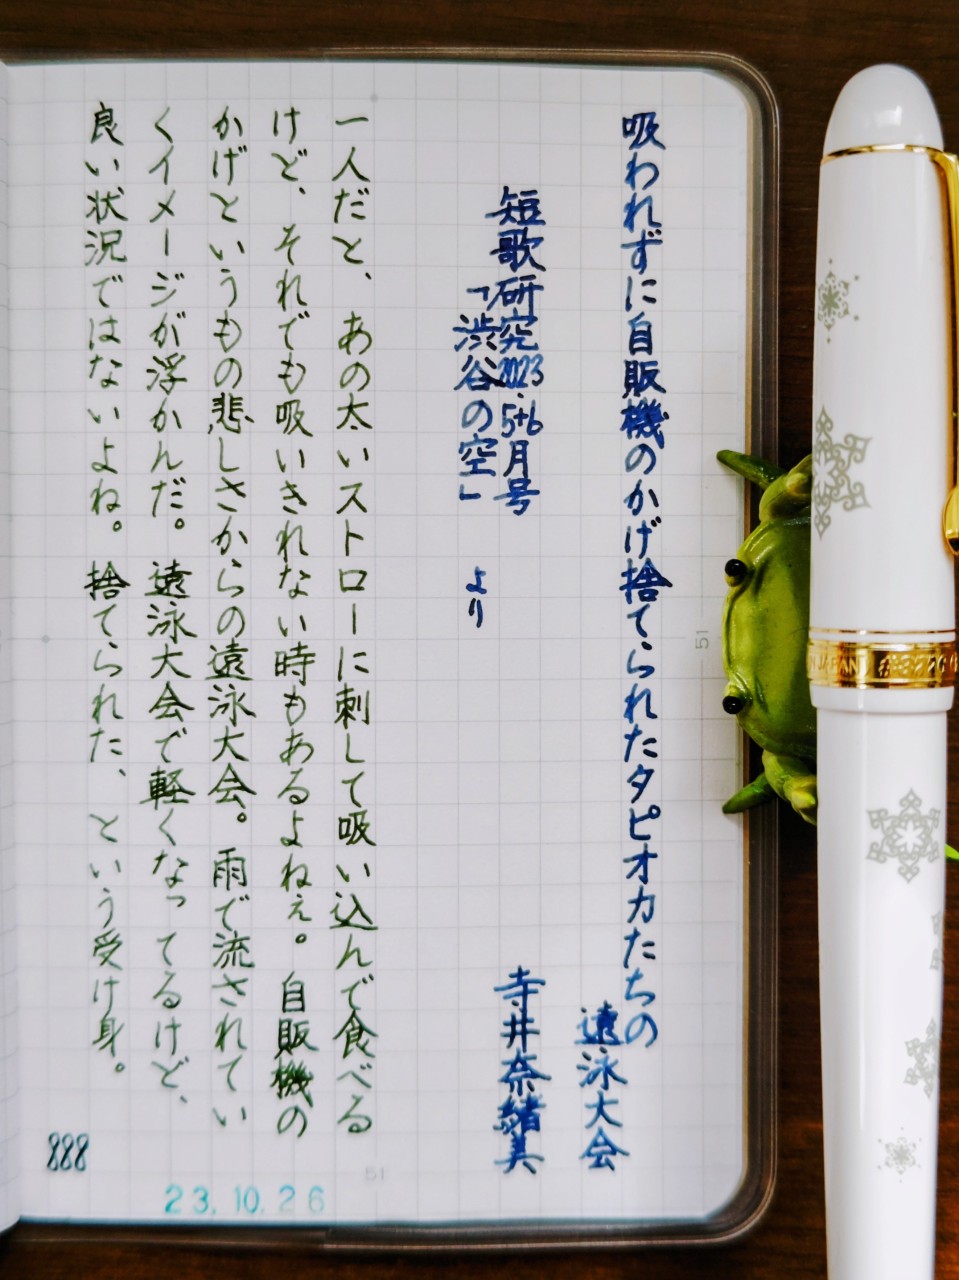 吸われずに自販機のかげ捨てられたタピオカたちの
遠泳大会
短歌研究2023.5+6月号
「渋谷の空」 より
寺井奈緒美
一人だと、あの太いストローに刺して吸い込んで食べる
けど、それでも吸いきれない時もあるよねぇ。自販機の
かげというもの悲しさからの遠泳大会。雨で流されてい
くイメージが浮かんだ。遠泳大会で軽くなってるけど、
良い状況ではないよね。捨てられた、という受け身。
888
23.10.26
51
51
JAPAN